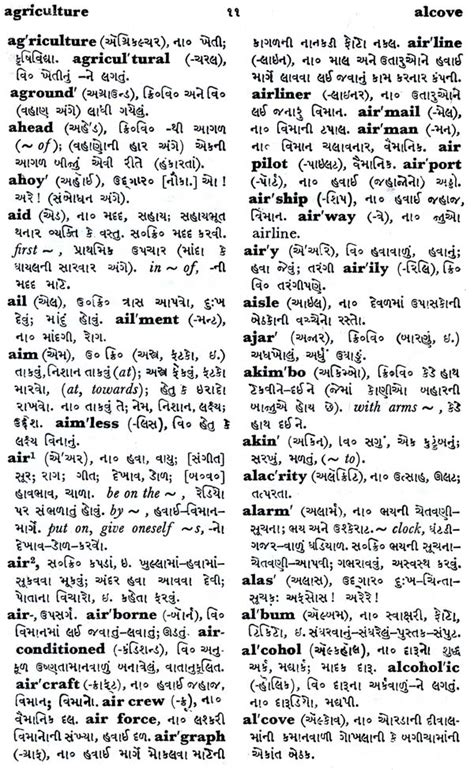 agriculture ૧૧ alcove
ag'riculture (ઍગ્રિકલ્ચર), ના૦ ખેતી;
કૃષિવિદ્યા. agricul'tural (–ચરલ),
વિ૦ ખેતીનું –ને લગતું.
aground' (અગ્રાઉન્ડ), ક્રિ૦વિ૦ અને વિ૦
(વહાણ અંગે) લાધી ગયેલું.
ahead (અહે'ડ), ક્રિ૦વિ૦ -થી આગળ
(~ of); (વહાણોની હાર અંગે) એકની
આગળ બીજું એવી રીતે (હંકારતાં).
ahoy' (અહૉઈ), ઉદ્ગાર૦ [નૌકા.] એ!
અરે! (સંબોધન અંગે).
aid (એડ), ના૦ મદદ, સહાય; સહાયભૂત
થનાર વ્યક્તિ કે વસ્તુ. સ૦ક્રિ૦ મદદ કરવી.
first ~, પ્રાથમિક ઉપચાર (માંદા કે
ઘાયલની સારવાર અંગે). in ~ of, -ની
મદદ માટે.
ail (એલ), ઉ૦ક્રિ૦ ત્રાસ આપવો, દુઃખ
દેવું; માંદું હોવું. ail'ment (–મન્ટ),
ના૦ માંદગી, રોગ.
aim (એમ), ઉ૦ ક્રિ૦ (અસ્ત્ર, ફટકો, ઇ.)
તાકવું, નિશાન તાકવું (at); અસ્ત્ર ફેંકવું, ફટકો
મારવો, (at, towards); હેતુ કે ઇરાદો
રાખવો. ના૦ તાકવું તે; નેમ, નિશાન, લક્ષ્ય;
ઉદ્દેશ. aim'less (–લિસ), વિ૦ હેતુ કે
લક્ષ્ય વિનાનું.
air¹ (એ'અર), ના૦ હવા, વાયુ; [સંગીત]
સૂર; રાગ; ગીત; દેખાવ, ડોળ; [બ૦વ૦]
હાવભાવ, ચાળા. be on the ~, રેડિયો
પર સંભળાતું હોવું. by ~, હવાઈ-વિમાન-
માર્ગે. put on, give oneself ~s, -નો
દેખાવ-ડોળ-કરવો.
air², સ૦ક્રિ૦ કપડાં, ઇ. ખુલ્લામાં-હવામાં-
સૂકવવા મૂકવું; અંદર હવા આવવા દેવી;
પોતાના વિચારો, ઇ. કહેતા ફરવું.
air-, ઉપસર્ગ. air'borne (–બૉર્ન), વિ૦
વિમાનમાં લઈ જવાતું-લવાતું;ઊડતું. air-
conditioned (–કંડિશન્ડ), વિ૦ અનુ-
કૂળ ઉષ્ણતામાનવાળું બનાવેલું, વાતાનુકૂલિત.
air'craft (–ક્રાફ્ટ), ના૦ હવાઈ જહાજ,
વિમાન; વિમાનો. air crew (–ક્રૂ), ના૦
વૈમાનિક દલ. air force, ના૦ લશ્કરી
વિમાનોની સંખ્યા, હવાઈ દળ. air'graph
(–ગ્રાફ), ના૦ હવાઈ માર્ગે મોકલવા માટેની
કાગળની નાનકડી ફોટો નકલ. air'line
(–લાઇન), ના૦ માલ અને ઉતારુઓને હવાઈ
માર્ગે લાવવા લઈ જવાનું કામ કરનાર કંપની.
airliner (–લાઇનર), ના૦ ઉતારુઓને
લઈ જનારું વિમાન. air'mail (–મેલ),
ના૦ વિમાની ટપાલ. air'man (–મન),
ના૦ વિમાન ચલાવનાર, વૈમાનિક. air
pilot (–પાઇલટ), વૈમાનિક. air'port
(–પૉર્ટ), ના૦ હવાઈ (જહાજોનો) અડ્ડો.
air'ship (–શિપ), ના૦ હવાઈ જહાજ,
વિમાન. air'way (–વે), ના૦ જુઓ
airline.
air'y (એ'અરિ), વિ૦ હવાવાળું, હવાનું;
હવા જેવું; તરંગી air'ily (–રિલિ), ક્રિ૦
વિ૦ તરંગીપણે.
aisle (આઇલ), ના૦ દેવળમાં ઉપાસકોની
બેઠકોની વચ્ચેનો રસ્તો.
ajar' (અજાર), ક્રિ૦વિ૦ (બારણું, ઇ.)
અધખોલું, અર્ધું ઉઘાડું.
akim'bo (અકિમ્બો), ક્રિ૦વિ૦ કેડે હાથ
ટેકવીને-દઈને (જેમાં કોણીઓ બહારની
બાજુએ હોય છે). with arms ~, કેડે
હાથ દઈને.
akin' (અકિન), વિ૦ સગું, એક કુટુંબનું;
સરખું, મળતું, (~ to).
alac'rity (અલૅક્રિટિ), ના૦ ઉત્સાહ, ઊલટ;
તત્પરતા.
alarm' (અલાર્મ), ના૦ ભયની ચેતવણી-
સૂચના; ભય અને ઉશ્કેરાટ.~ clock, ઘંટડી-
ગજર-વાળું ઘડિયાળ. સ૦ક્રિ૦ ભયની સૂચના-
ચેતવણી-આપવી; ગભરાવવું, અસ્વસ્થ કરવું.
alas' (અલાસ), ઉદ્ગાર૦ દુઃખ-ચિન્તા-
સુચકઃ અફસોસ! અરેરે!
al'bum (ઍલ્બમ), ના૦ સ્વાક્ષરી, ફોટો,
ટિકિટો, ઇ. સંઘરવાનું-સંઘરેલું-પુસ્તક-સંપુટ.
al'cohol (ઍલ્કહૉલ), ના૦ દારૂનો શુદ્ધ
અર્ક, મદ્યાર્ક; માદક દારૂ. alcohol'ic
(–હૉલિક), વિ૦ દારૂના અર્કવાળું-ને લગતું.
ના૦ દારૂડિયો, મદ્યપી.
al'cove (ઍલ્કોવ), ના૦ ઓરડાની દીવાલ-
માંની કમાનવાળી ગોખલાની કે બગીચામાંની
એકાંત બેઠક.